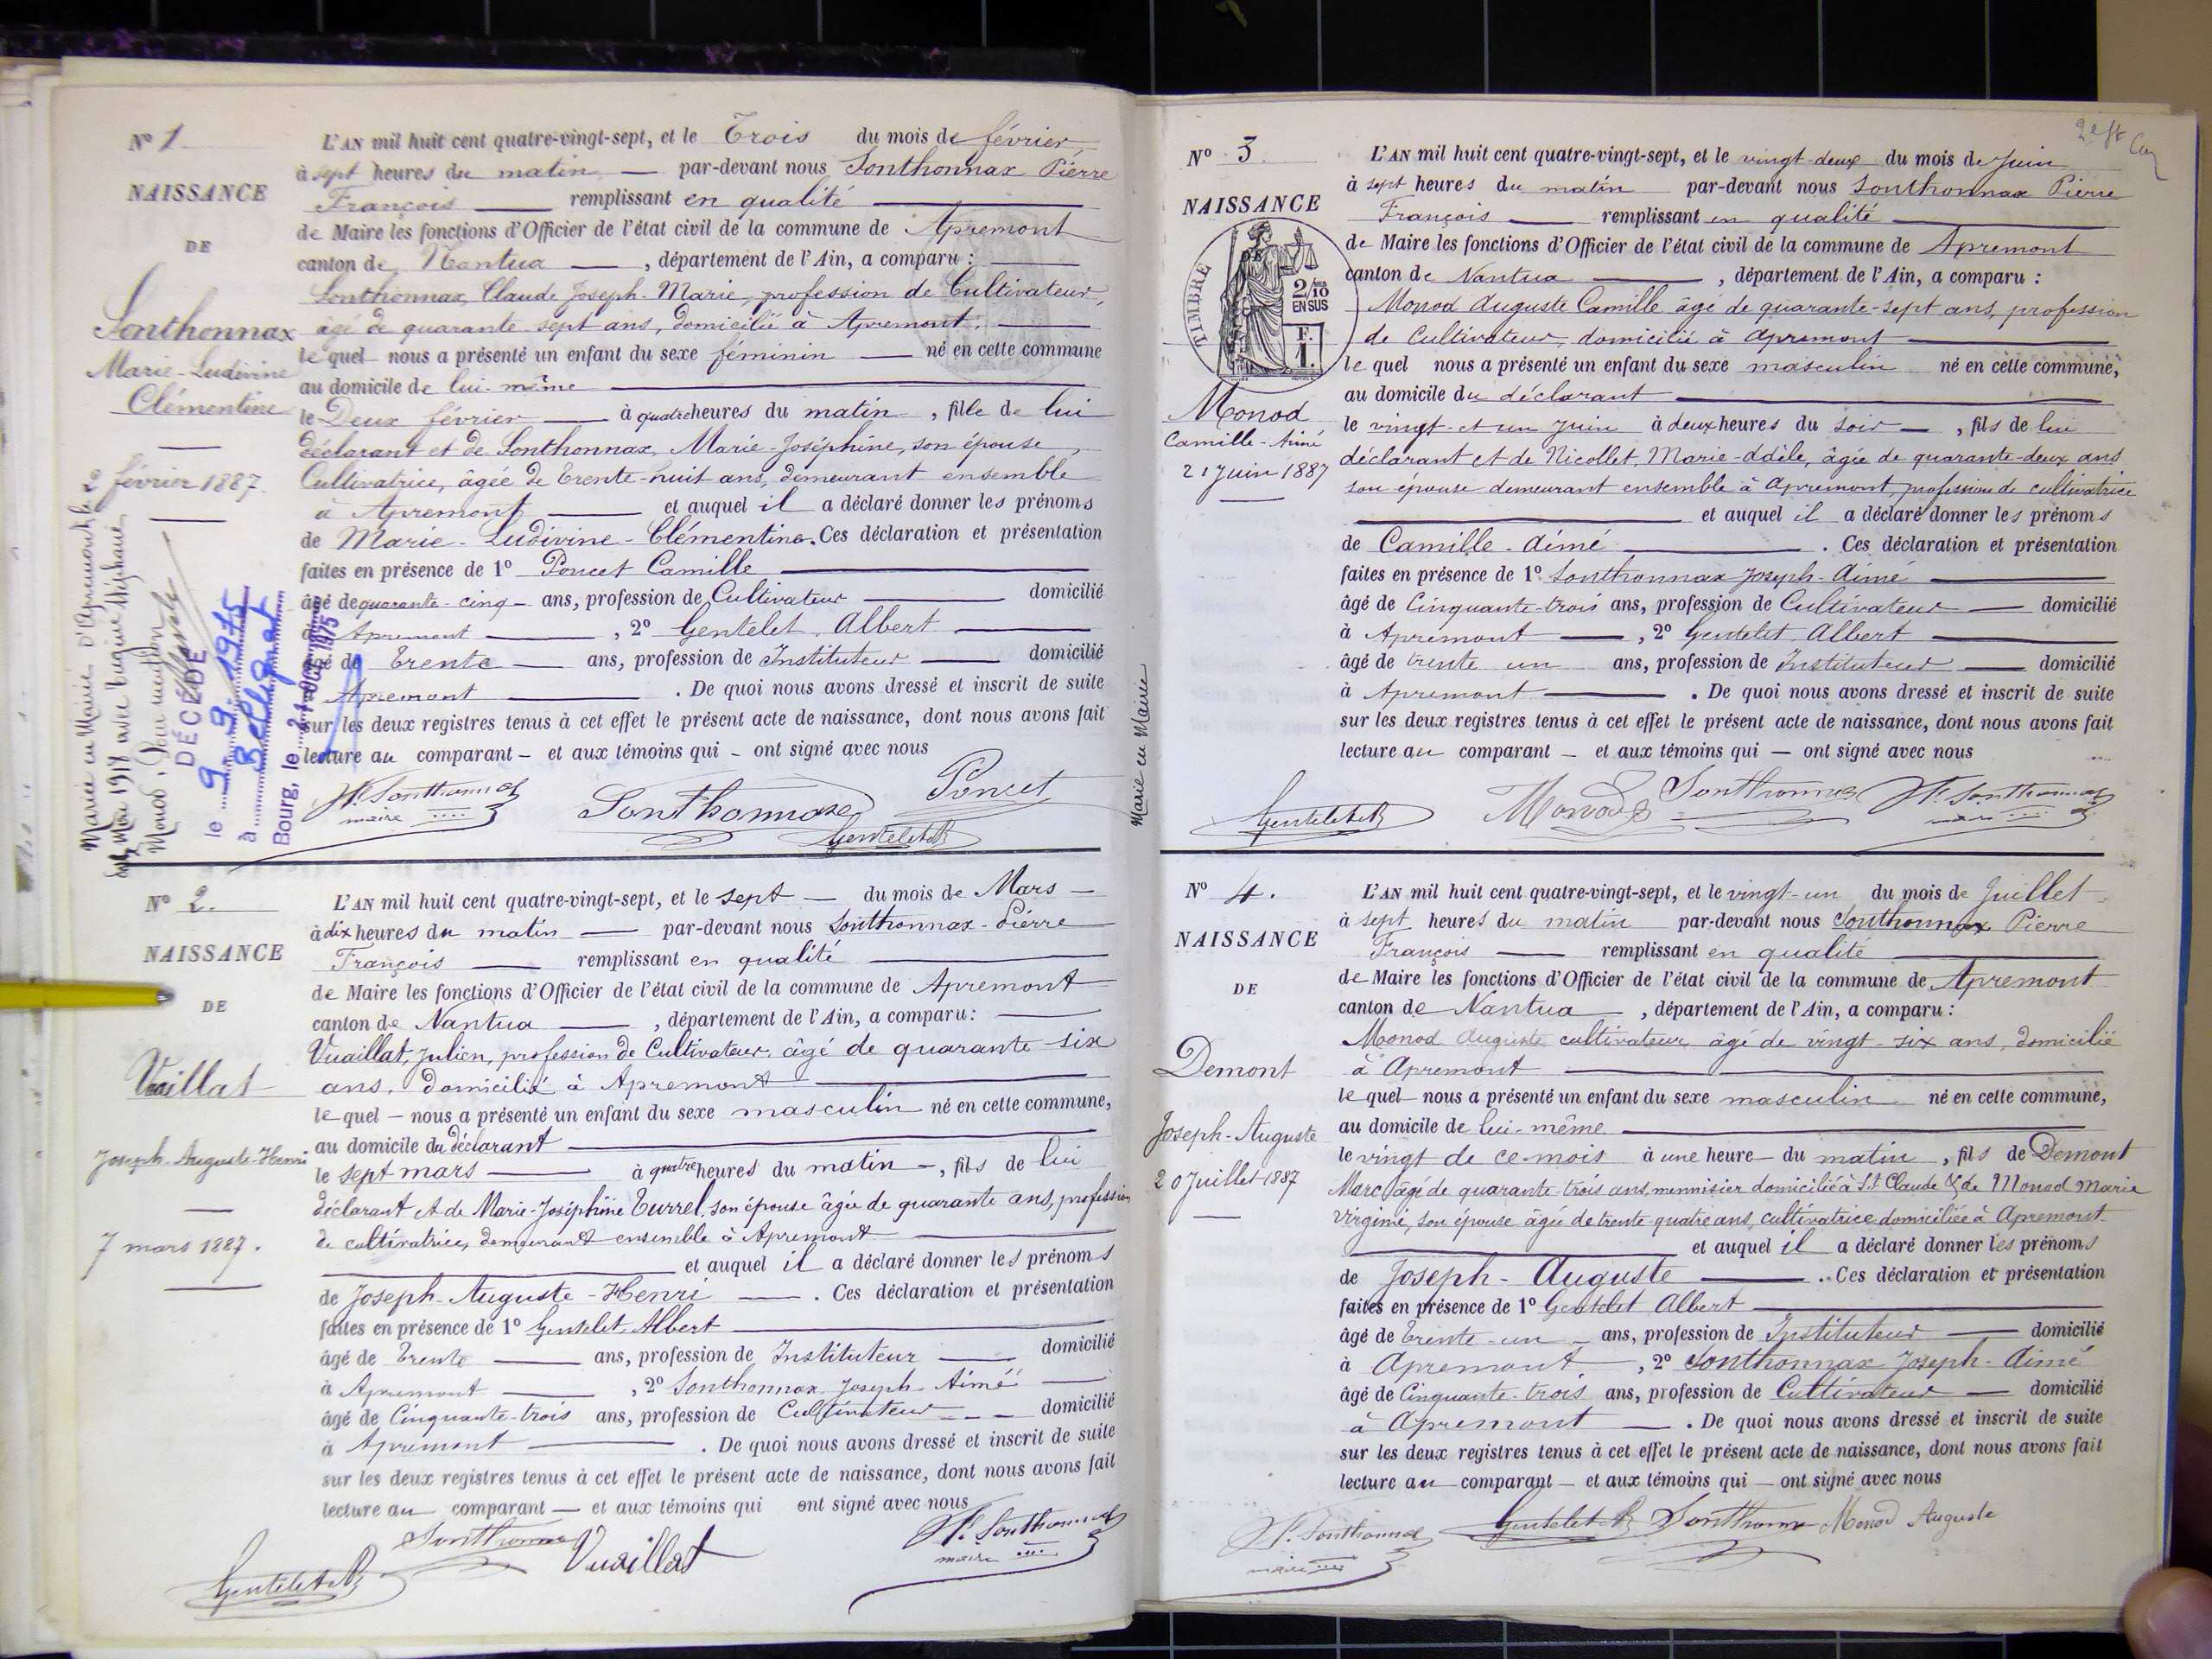 N° 1
NAISSANCE
DE
Sonthonnax
Marie-Ludivine
Clémentine
2 février 1887.
Mariée en Mairie d'Apremont le
mai 1918 avec Eugène Stéphane
Monod. Pour mention
DÉCÉDÉE
le 9.9.1975
à Bellignat
Bourg, le 21 OCT 1975
L'AN mil huit cent quatre-vingt-sept, et le Trois du mois de février
à sept heures du matin — par-devant nous Sonthonnax Pierre
François — remplissant en qualité
de Maire les fonctions d'Officier de l'état civil de la commune de Apremont
canton de Nantua — , département de l'Ain, a comparu :
Sonthonnax, Claude Joseph-Marie, profession de Cultivateur,
âgé de quarante-sept ans, domicilié à Apremont.
lequel nous a présenté un enfant du sexe féminin — né en cette commune
au domicile de lui-même
le Deux février — à quatre heures du matin , fille de lui
déclarant et de Sonthonnax, Marie-Joséphine, son épouse,
Cultivatrice, âgée de trente-huit ans, demeurant ensemble
à Apremont — et auquel il a déclaré donner les prénoms
de Marie-Ludivine-Clémentine. Ces déclaration et présentation
faites en présence de 1° Poncet Camille
âgé de quarante-cinq — ans, profession de Cultivateur — domicilié
à Apremont — , 2° Gentelet, Albert
âgé de trente — ans, profession de Instituteur — domicilié
Apremont — . De quoi nous avons dressé et inscrit de suite
sur les deux registres tenus à cet effet le présent acte de naissance, dont nous avons fait
lecture au comparant — et aux témoins qui — ont signé avec nous
Pf. Sonthonnax
maire
Sonthonnax
Poncet
Gentelet
N° 2.
NAISSANCE
DE
Vuaillat
Joseph-Auguste-Henri
7 mars 1887.
L'AN mil huit cent quatre-vingt-sept, et le sept — du mois de Mars —
à dix heures du matin — par-devant nous Sonthonnax-Pierre
François — remplissant en qualité
de Maire les fonctions d'Officier de l'état civil de la commune de Apremont
canton de Nantua — , département de l'Ain, a comparu :
Vuaillat, Julien, profession de Cultivateur, âgé de quarante-six
ans, domicilié à Apremont
lequel — nous a présenté un enfant du sexe masculin né en cette commune,
au domicile du déclarant
le sept mars — à quatre heures du matin — , fils de lui
déclarant et de Marie-Joséphine Turrel, son épouse âgée de quarante ans, profession
de cultivatrice, demeurant ensemble à Apremont
et auquel il a déclaré donner les prénoms
de Joseph-Auguste-Henri — . Ces déclaration et présentation
faites en présence de 1° Gentelet, Albert
âgé de trente — ans, profession de Instituteur — domicilié
à Apremont — , 2° Sonthonnax Joseph-Aimé
âgé de Cinquante-trois ans, profession de Cultivateur — domicilié
à Apremont — . De quoi nous avons dressé et inscrit de suite
sur les deux registres tenus à cet effet le présent acte de naissance, dont nous avons fait
lecture au comparant — et aux témoins qui ont signé avec nous
Gentelet
Sonthonnax
Vuaillat
Pf. Sonthonnax
maire
Marié en Mairie
N° 3.
NAISSANCE
DE
TIMBRE
2/10
EN SUS
F.
1.
Monod
Camille-Aimé
21 Juin 1887
L'AN mil huit cent quatre-vingt-sept, et le vingt-deux du mois de Juin
à sept heures du matin par-devant nous Sonthonnax Pierre
François — remplissant en qualité
de Maire les fonctions d'Officier de l'état civil de la commune de Apremont
canton de Nantua — , département de l'Ain, a comparu :
Monod Auguste Camille âgé de quarante-sept ans, profession
de Cultivateur, domicilié à Apremont
lequel nous a présenté un enfant du sexe masculin né en cette commune,
au domicile du déclarant
le vingt-et un Juin à deux heures du soir — , fils de lui
déclarant et de Nicollet, Marie-Adèle, âgée de quarante-deux ans
son épouse demeurant ensemble à Apremont, profession de cultivatrice
et auquel il a déclaré donner les prénoms
de Camille-Aimé — . Ces déclaration et présentation
faites en présence de 1° Sonthonnax Joseph-Aimé
âgé de Cinquante-trois ans, profession de Cultivateur — domicilié
à Apremont — , 2° Gentelet, Albert
âgé de trente un ans, profession de Instituteur — domicilié
à Apremont — . De quoi nous avons dressé et inscrit de suite
sur les deux registres tenus à cet effet le présent acte de naissance, dont nous avons fait
lecture au comparant — et aux témoins qui — ont signé avec nous
Gentelet
Monod
Sonthonnax
Pf. Sonthonnax
maire
N° 4.
NAISSANCE
DE
Demont
Joseph-Auguste
20 Juillet 1887
L'AN mil huit cent quatre-vingt-sept, et le vingt-un du mois de Juillet
à sept heures du matin par-devant nous Sonthonnax Pierre
François — remplissant en qualité
de Maire les fonctions d'Officier de l'état civil de la commune de Apremont
canton de Nantua — , département de l'Ain, a comparu :
Monod Auguste cultivateur âgé de vingt-six ans, domicilié
à Apremont
lequel nous a présenté un enfant du sexe masculin né en cette commune,
au domicile de lui-même
le vingt de ce mois à une heure — du matin , fils de Demont
Marc, âgé de quarante-trois ans, menuisier domicilié à St Claude & de Monod Marie
Virginie, son épouse âgée de trente quatre ans, cultivatrice domiciliée à Apremont
et auquel il a déclaré donner les prénoms
de Joseph-Auguste — . Ces déclaration et présentation
faites en présence de 1° Gentelet Albert
âgé de trente-un — ans, profession de Instituteur — domicilié
à Apremont — , 2° Sonthonnax Joseph-Aimé
âgé de Cinquante-trois ans, profession de Cultivateur — domicilié
à Apremont — . De quoi nous avons dressé et inscrit de suite
sur les deux registres tenus à cet effet le présent acte de naissance, dont nous avons fait
lecture au comparant — et aux témoins qui — ont signé avec nous
Pf. Sonthonnax
maire
Gentelet
Sonthonnax
Monod Auguste